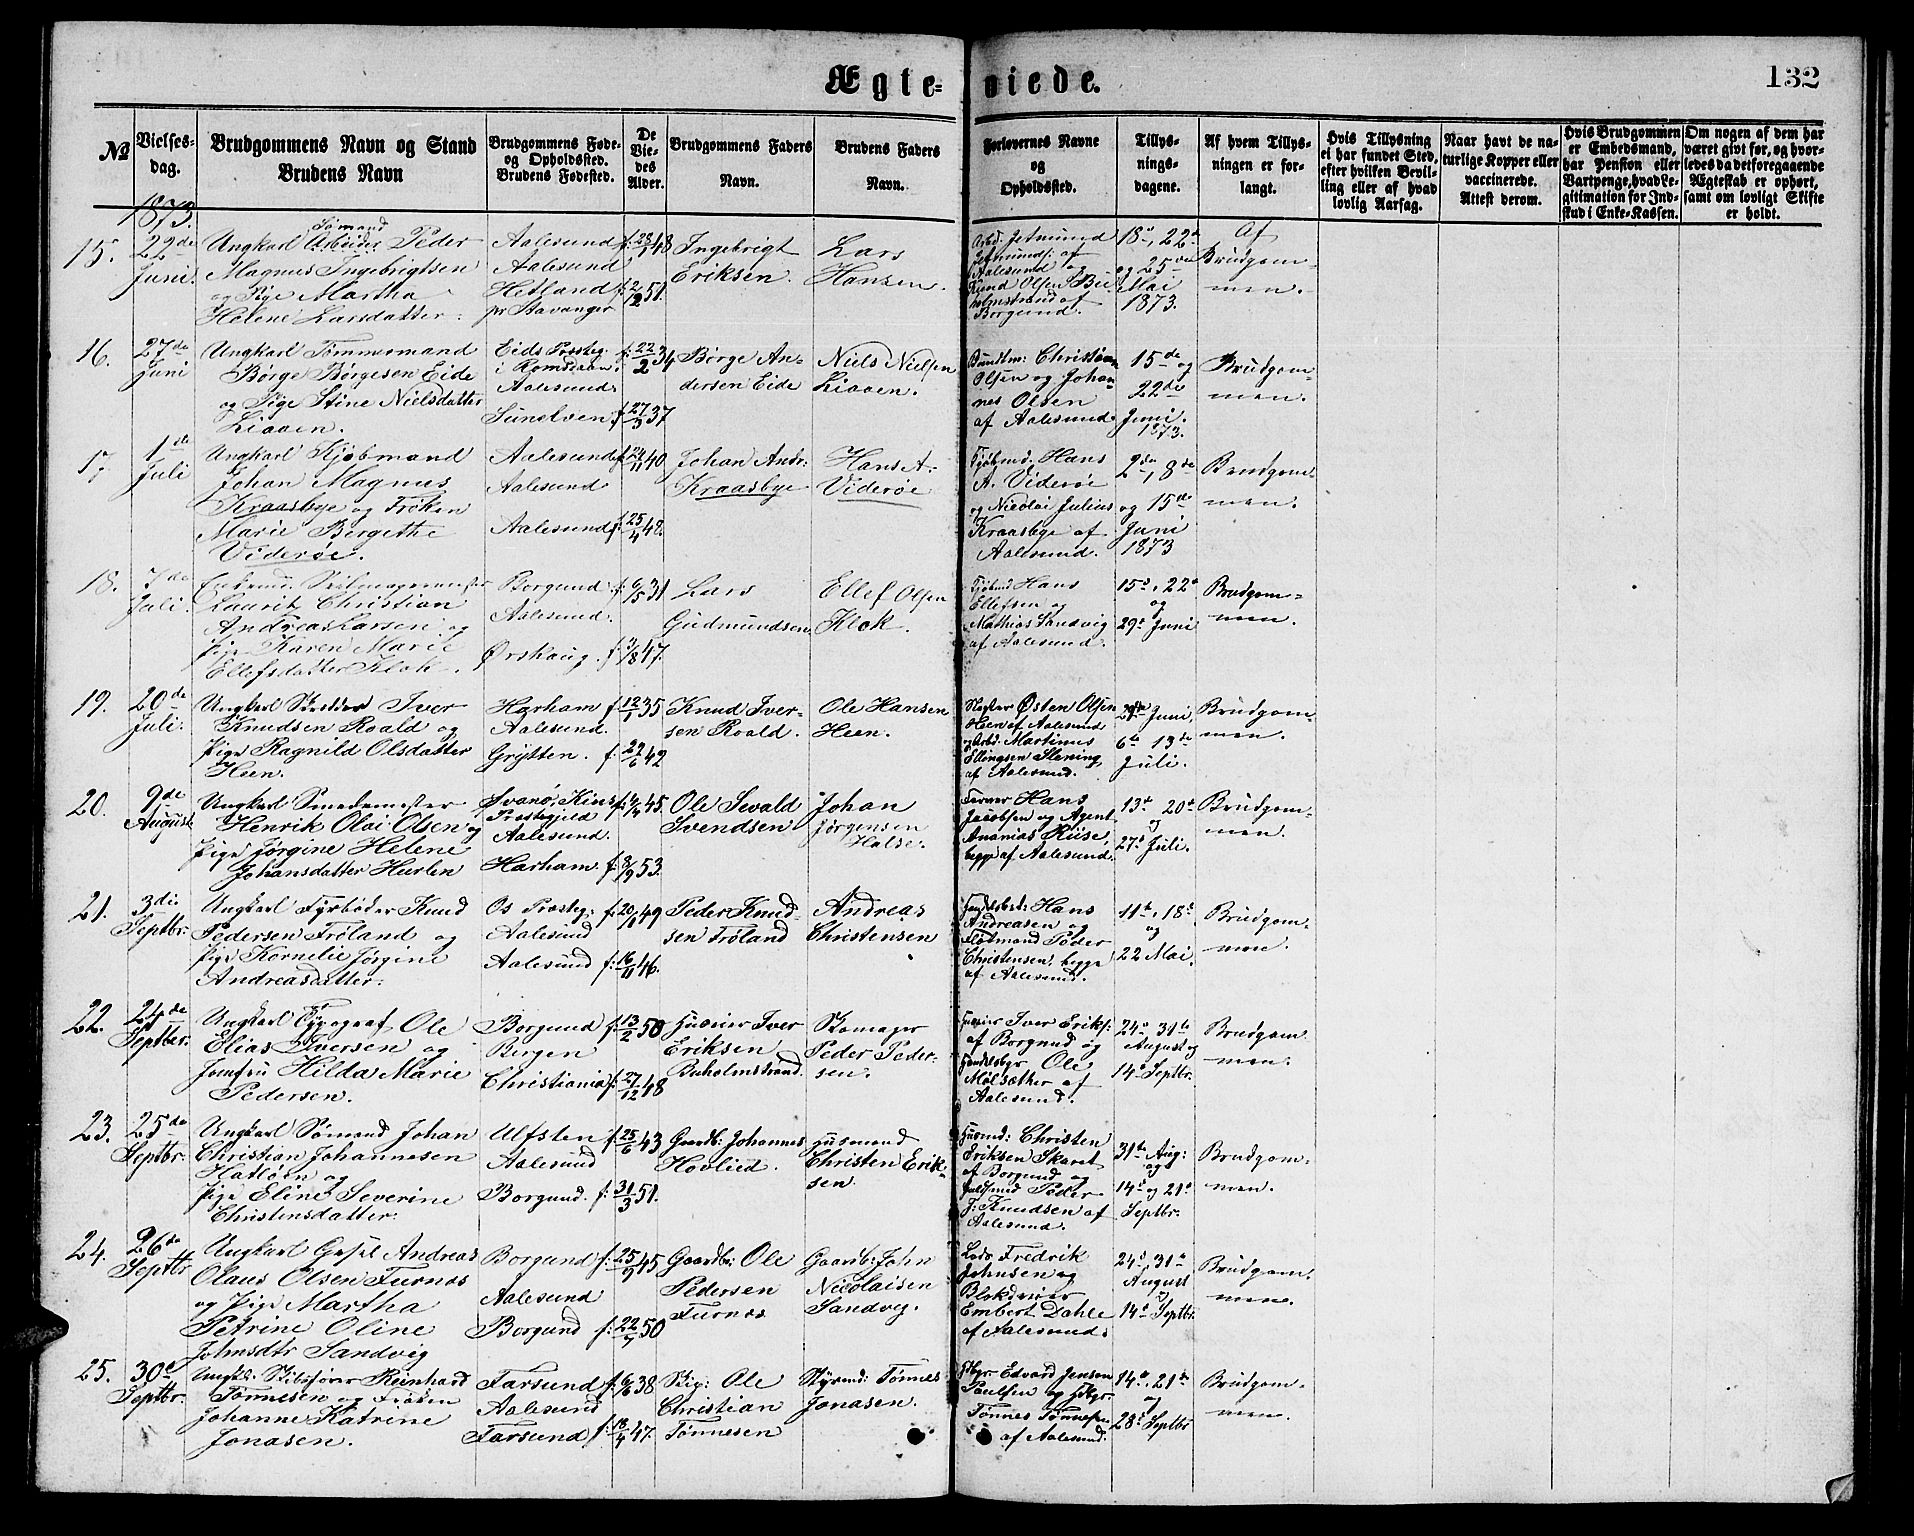 Ægte-
viede.
132
No
Vielses-
dag.
Brudgommens Navn og Stand
Brudens Navn
Brudgommens Føde-
og Opholdssted.
Brudens Fødested.
De
Vie-
des
Alder.
Brudgommens Faders
Navn.
Brudens Faders
Navn.
Forlovernes Navne
og
Opholdssted.
Tillys-
nings-
dagene.
Af hvem Tillys-
ningen er for-
langt.
Hvis Tillysning
ei har fundet Sted,
efter hvilken Bevil-
ling eller af hvad
lovlig Aarsag.
Naar havt de na-
turlige Kopper eller
vaccinerede.
Attest derom.
Hvis Brudgommen
er Embedsmand,
har Pension eller
Vartpenge, hvad Le-
gitimation for Ind-
skud i Enke-Kassen.
Om nogen af dem har
været givt før, og hvor-
ledes da det foregaaende
Ægteskab er ophørt,
samt om lovligt Skifte
er holdt.
1873.
15.
22de
Juni.
Sømand
Ungkarl Arbeider Peder
Magnus Ingebrigtsen
og Pige Martha
Helene Larsdatter.
Aalesund
Aalesund
Hetland
pr Stavanger
f: 28/1 48
f: 2/12 51.
Ingebrigt
Eriksen.
Lars
Hansen.
Arbd: Jetmund
Jetmunds: af
Aalesund og
Knud Olsen Bu-
holmstrand af
Borgund.
18d, 22de
og 25de
Mai
1873.
Af
Brudgom-
men.
16.
27de
Juni
Ungkarl Tømmermand
Børge Børgesen Eide
og Pige Stine Nielsdatter
Liaaen.
Eids Præsteg:
i Romsdalen.
Aalesund.
Sunelven.
f: 22/2 34
f: 27/3 37
Børge An-
dersen Eide
Niels Nielsen
Liaaen.
Bundtm: Christian
Olsen og Johan-
nes Olsen
af Aalesund.
15de og
22de
Juni.
1873.
Brudgom-
men.
17.
1de
Juli
Ungkarl Kjøbmand
Johan Magnus
Kraasbye og Frøken
Marie Bergethe
Viderøe.
Aalesund
Aalesund
Aalesund
f: 24/11 40
f: 25/4 48.
Johan Andr:
Kraasbye
Hans A.
Viderøe
Kjøbmd. Hans
A. Viderøe
og Nicolai Julius
Kraasbye af
Aalesund.
2de, 8de
og 15de
Juni
1873
Brudgom-
men.
18.
7de
Juli.
Enkemd. Seilmagermester
Laurits Christian
Andreas Larsen og
Pige Karen Marie
Ellefsdatter Klok.
Borgund
Aalesund.
Ørskoug.
f: 6/5 31
f: 3/8 47.
Lars
Gudmundsen
Ellef Olsen
Klok.
Kjøbmd Hans
Ellefsen og
Mathias Sandvig
af Aalesund.
15d, 22d
og
29d Juni
Brudgom-
men.
19.
20de
Juli.
Ungkarl Skrædder Iver
Knudsen Roald og
Pige Ragnild Olsdatter
Heen.
Harham
Aalesund.
Grytten.
f: 12/1 35
f: 22/6 42
Knud Iver-
sen Roald.
Ole Hansen
Heen.
Østen Olsen
Heen af Aalesund
og Arbd. Martinus
Ellingsen Slening,
af Aalesund.
29de Juni,
6te 13de
Juli.
Brudgom-
men.
20.
9de
August
Ungkarl Smedemester
Henrik Olai Olsen og
Pige Jørgine Helene
Johansdatter Hurlen
Svanø, Kins
Præstegjeld
Aalesund.
Harham.
f: 4/7 45.
f: 8/9 53.
Ole Sevald
Svendsen
Johan
Jørgensen
Halse.
Farver Hans
Jacobsen og Agent
Ananias Riise,
begge af Aalesund.
13d 20d
og
27d Juli.
Brudgom-
men.
21.
3die
Septbr.
Ungkarl Fyrbøder Knud
Pedersen Frøland og
Pige Kornelie Jørgine
Andreasdatter.
Os Præsteg:
Aalesund
Aalesund
f: 20/11 49
f: 16/11 46.
Peder Knud-
sen Frøland
Andreas
Christensen
Handelsbet: Hans
Andreasen og
Flødmand Peder
Christensen, begge
af Aalesund.
11te, 18d
og
22 Mai.
Brudgom-
men.
22.
24de
Septber.
Ungkarl Typograf Ole
Elias Iversen og
Jomfru Hilda Marie
Pedersen.
Borgund
Bergen
Christiania
f: 13/2 50
f: 27/12 48
Huseier Iver
Eriksen
Buholmstrand.
Skomager
Peder Peder-
sen.
Huseier Iver Eriks:
af Borgund og
Handelsbgr Ole
Molsæther af
Aalesund.
24d, 31te
August og
14d Septbr.
Brudgom-
men.
23.
25de
Septbr.
Ungkarl Sømand Johan
Christian Johannesen
Hatløen og
Pige Eline Severine
Christensdatter.
Ulfsten
Aalesund
Borgund.
f: 25/6 43
f: 31/3 51.
Gaardb: Johannes
Hovlied.
Husmand
Christen Erik-
sen.
Husmd: Christen
Eriksen Skaret
af Borgund og
Peder
J. Knudsen af
Aalesund.
31te Aug:
og
14d og 21d
Septbr.
Brudgom-
men.
24.
26de
Septbr
Ungkarl Gasel Andreas
Olaus Olsen Furnæs
og Pige Martha
Petrine Oline
Johnsdtr Sandvig
Borgund
Aalesund
Borgund
f: 25/9 45
f: 22/7 50
Gaardb: Ole
Pedersen
Furnæs
Gaardb: John
Nicolaisen
Sandvig.
Lods Fredrik
Johnsen og
Blokdreier
Embert Dahle
af Aalesund.
24d, 31te
August
og
14d Septbr.
Brudgom-
men.
25.
30te
Septbr.
Ungkl. Skibsfører Reinhard
Tønnesen og Frøken
Johanne Katrine
Jonasen.
Farsund
Aalesund
Farsund
f: 6/6 38
f: 18/4 47.
Skip: Ole
Christian
Tønnesen
Styrmd: Tønnes
Jonasen.
Hdbgr Edvard Jensen
Paulsen og Hdbgr.
Tønnes Tønnesen
af Aalesund.
14d, 21de
og
28d Septbr
Brudgom-
men.